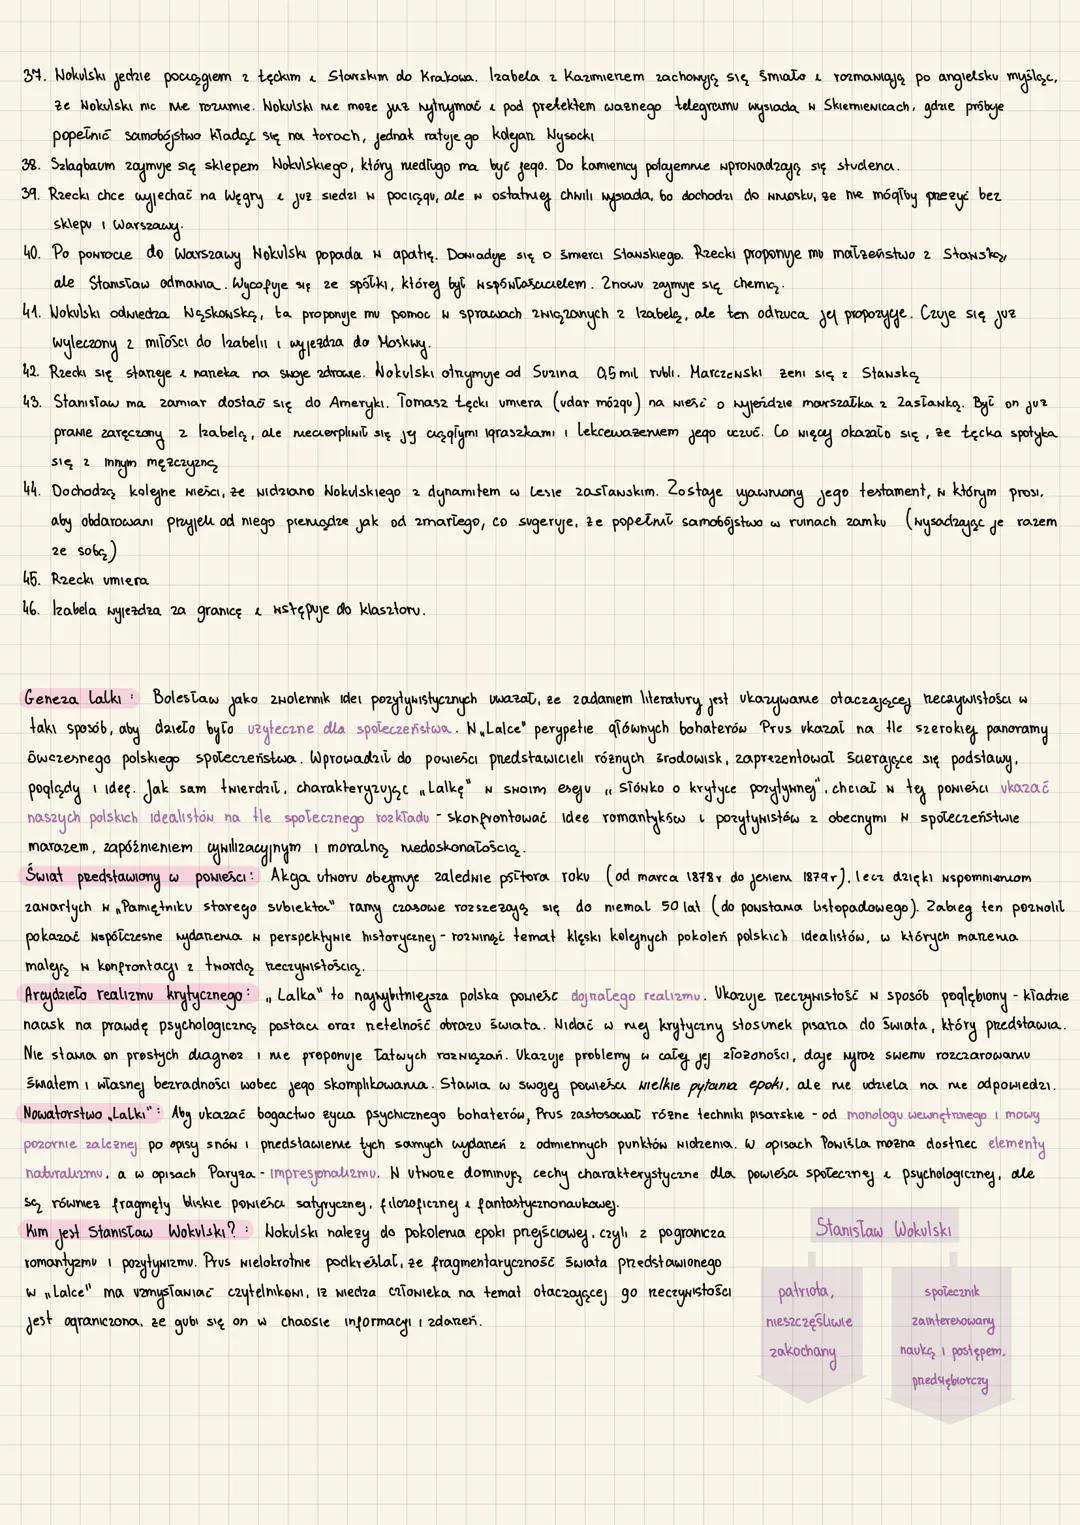 37. Wokulski jedzie pociągiem z Łęckim i Starskim do Krakowa. Izabela z Kazimierzem zachowują się śmiało i rozmawiają po angielsku myśląc,
że Wokulski nic nie rozumie. Wokulski nie może już wytrzymać i pod pretekstem ważnego telegramu wysiada w Skierniewicach, gdzie próbuje
popełnić samobójstwo kładąc się na torach, jednak ratuje go kolejarz Wysocki
38. Szlagbaum zajmuje się sklepem Wokulskiego, który niedługo ma być jego. Do kamienicy potajemnie wprowadzają się studenci.
39. Rzecki chce wyjechać na Węgry i już siedzi w pociągu, ale w ostatniej chwili wysiada, bo dochodzi do wniosku, że nie mógłby przeżyć bez
sklepu i Warszawy.
40. Po powrocie do Warszawy Wokulski popada w apatię. Dowiaduje się o śmierci Stawskiego. Rzecki proponuje mu małżeństwo z Stawską,
ale Stanisław odmawia. Wycofuje się ze spółki, której był współwłaścicielem. Znowu zajmuje się chemią.
41. Wokulski odwiedza Wąskowską, ta proponuje mu pomoc w sprawach związanych z Izabelą, ale ten odrzuca jej propozycje. Czuje się już
wyleczony z miłości do Izabelii i wyjeżdża do Moskwy.
42. Rzecki się starzeje i narzeka na swoje zdrowie. Wokulski otrzymuje od Suzina 0,5 mil rubli. Marczewski żeni się z Stawską
43. Stanisław ma zamiar dostać się do Ameryki. Tomasz Łęcki umiera (udar mózgu) na wieść o wyjeździe marszałka z Zasławką. Był on już
prawie zaręczony z Izabelą, ale niecierpliwił się jej ciągłymi igraszkami i lekceważeniem jego uczuć. Co więcej okazało się, że Łęcka spotyka
się z innym mężczyzną
44. Dochodzą kolejne wieści, że widziano Wokulskiego z dynamitem w lesie zasławskim. Zostaje ujawniony jego testament, w którym prosi,
aby obdarowani przyjęli od niego pieniądze jak od zmarłego, co sugeruje, że popełnił samobójstwo w ruinach zamku (wysadzając je razem
ze sobą)
45. Rzecki umiera
46. Izabela wyjeżdża za granicę i wstępuje do klasztoru.
Geneza lalki: Bolesław jako zwolennik idei pozytywistycznych uważał, że zadaniem literatury jest ukazywanie otaczającej rzeczywistości w
taki sposób, aby dzieło było użyteczne dla społeczeństwa. W „Lalce" perypetie głównych bohaterów Prus ukazał na tle szerokiej panoramy
ówczesnego polskiego społeczeństwa. Wprowadził do powieści przedstawicieli różnych środowisk, zaprezentował ścierające się podstawy,
poglądy i idee. Jak sam twierdził, charakteryzując „Lalkę" w swoim eseju „Słówko o krytyce pozytywnej", chciał w tej powieści ukazać
naszych polskich idealistów na tle społecznego rozkładu - skonfrontować idee romantyków i pozytywistów z obecnymi w społeczeństwie
marazem, zapóźnieniem cywilizacyjnym i moralną niedoskonałością.
Świat przedstawiony w powieści: Akcja utworu obejmuje zaledwie półtora roku (od marca 1878r do jesieni 1879r), lecz dzięki wspomnieniom
zawartych w „Pamiętniku starego subiekta" ramy czasowe rozszerzają się do niemal 50 lat (do powstania listopadowego). Zabieg ten pozwolił
pokazać współczesne wydarzenia w perspektywie historycznej - rozwinąć temat klęski kolejnych pokoleń polskich idealistów, w których marzenia
maleją w konfrontacji z twardą rzeczywistością.
Arcydzieło realizmu krytycznego: „Lalka" to najwybitniejsza polska powieść dojrzałego realizmu. Ukazuje rzeczywistość w sposób pogłębiony - kładzie
nacisk na prawdę psychologiczną postaci oraz rzetelność obrazu świata. Widać w niej krytyczny stosunek pisarza do świata, który przedstawia.
Nie stawia on prostych diagnoz i nie proponuje łatwych rozwiązań. Ukazuje problemy w całej jej złożoności, daje wyraz swemu rozczarowaniu
światem i własnej bezradności wobec jego skomplikowania. Stawia w swojej powieści wielkie pytania epoki, ale nie udziela na nie odpowiedzi.
Nowatorstwo „Lalki": Aby ukazać bogactwo życia psychicznego bohaterów, Prus zastosował różne techniki pisarskie - od monologu wewnętrznego i mowy
pozornie zależnej po opisy snów i przedstawienie tych samych wydarzeń z odmiennych punktów widzenia. W opisach Powiśla można dostrzec elementy
naturalizmu, a w opisach Paryża - impresjonalizmu. W utworze dominują cechy charakterystyczne dla powieści społecznej i psychologicznej, ale
są również fragmęty bliskie powieści satyrycznej, filozoficznej i fantastycznonaukowej.
Kim jest Stanisław Wokulski?: Wokulski należy do pokolenia epoki przejściowej, czyli z pogranicza
romantyzmu i pozytywizmu. Prus wielokrotnie podkreślał, że fragmentaryczność świata przedstawionego
w „Lalce" ma uzmysławiać czytelnikowi, iż wiedza człowieka na temat otaczającej go rzeczywistości
jest ograniczona, że gubi się on w chaosie informacji i zdarzeń.
Stanisław Wokulski
patriota,
nieszczęśliwie
zakochany
społecznik
zainteresowany
nauką i postępem,
przedsiębiorczy